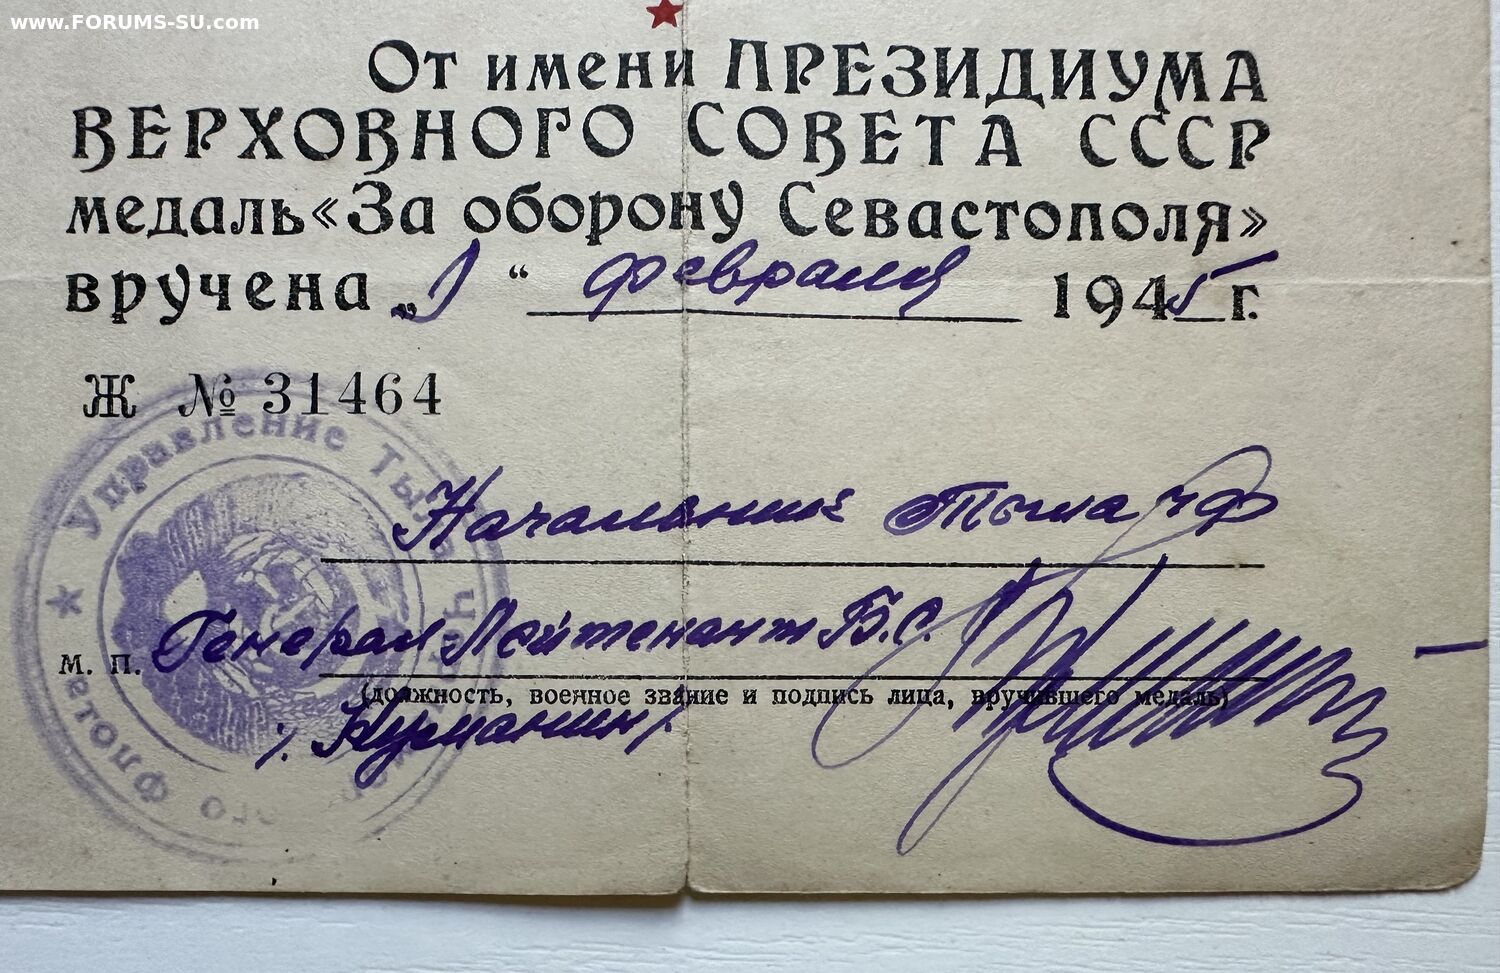 www.FORUMS-SU.com
От имени ПРЕЗИДИУМА
ВЕРХОВНОГО СОВЕТА СССР
медаль «За оборону Севастополя»
вручена „1“ февраля 1945 г.
Ж № 31464
Управление Тыла Черноморского Флота
Начальник Тыла ЧФ
Генерал Лейтенант Б.С.
м. п.
(должность, военное звание и подпись лица, вручившего медаль)